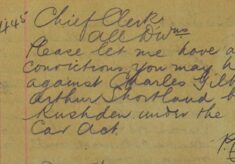 445
Chief Clerk
All Divns
Please let me have a
convictions you may h
against Charles Gilb
Arthur Shortland b
Rushden under the
Car Act